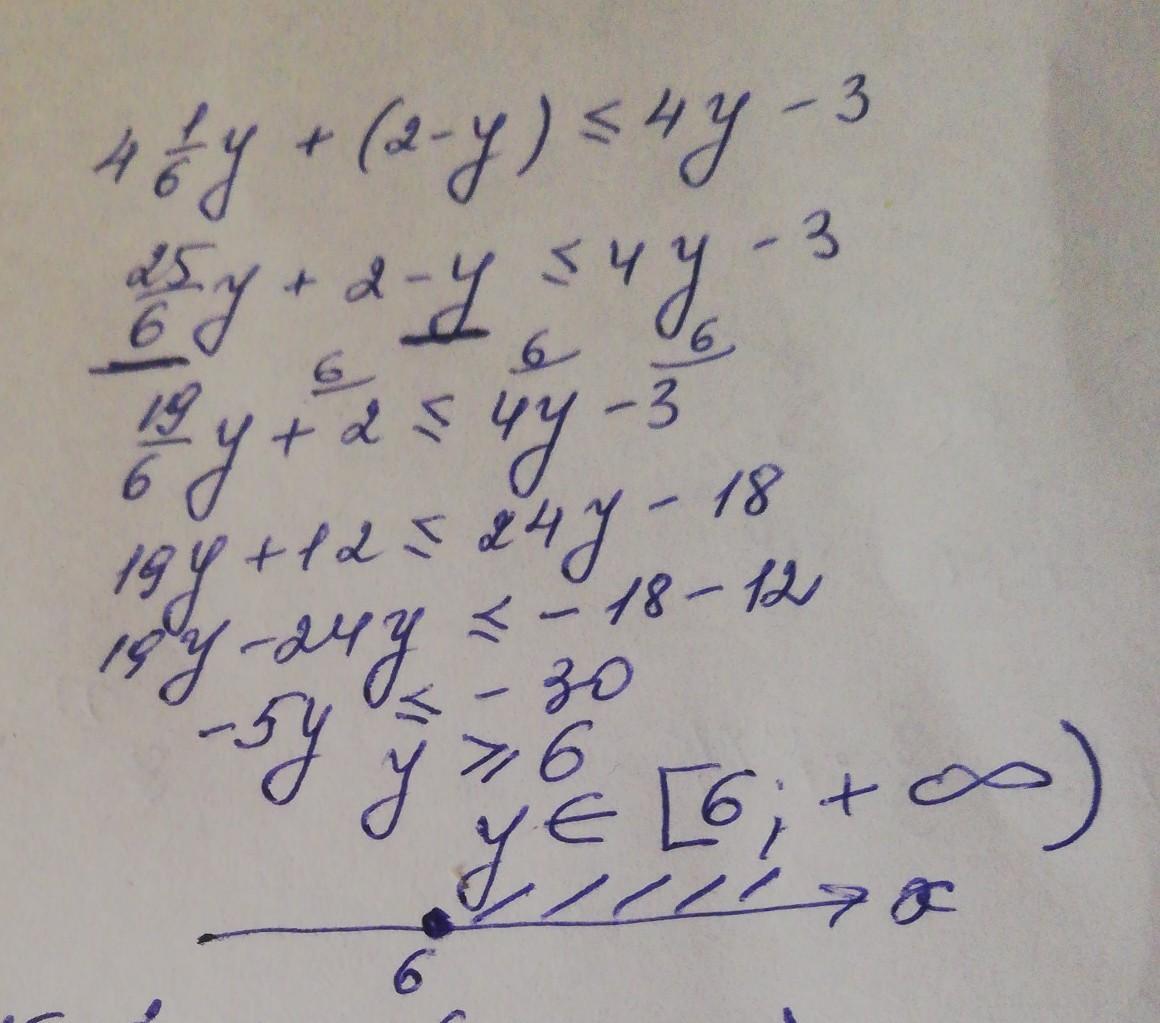 4 1/6 y + (2 - y) ≤ 4y - 3
25/6 y + 2 - y ≤ 4y - 3
6 6 6
19/6 y + 2 ≤ 4y - 3
19y + 12 ≤ 24y - 18
19y - 24y ≤ - 18 - 12
-5y ≤ - 30
y ≥ 6
y ∈ [6; + ∞)
x
6